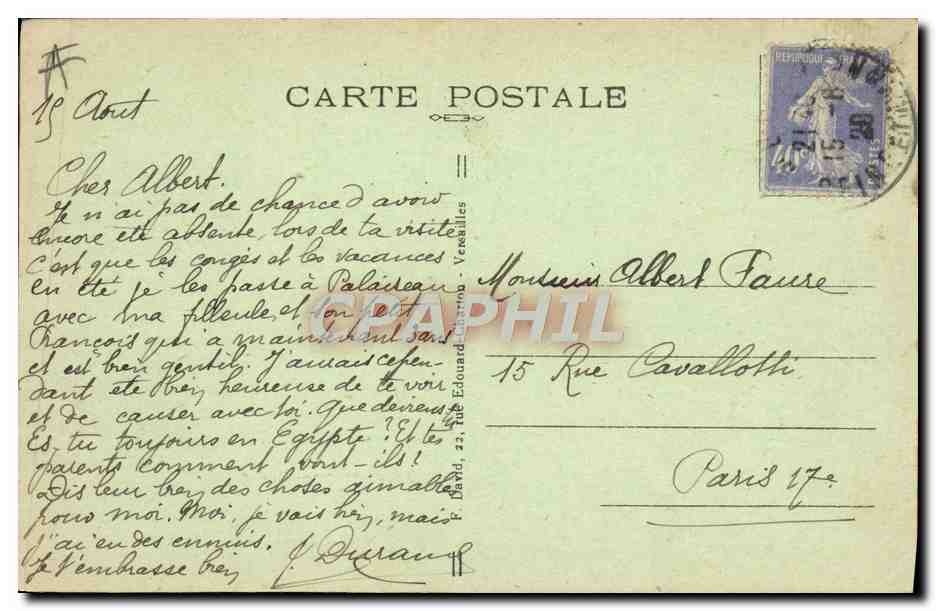 A
15 Aout
CARTE POSTALE
Cher Albert.
Je n'ai pas de chance d'avoir
encore été absente, lors de ta visite
c'est que les congés et les vacances
en été je les passe à Palaiseau
avec ma filleule, et son petit
François qui a maintenant ans
et est bien gentil. J'aurais cepen-
dant été bien heureuse de te voir
et de causer avec toi. Que deviens-tu
Es-tu toujours en Egypte? Et tes
parents comment vont-ils?
Dis leur bien des choses aimables
pour moi. Moi, je vais bien, mais
j'ai eu des ennuis.
Je t'embrasse bien
J. Durand
David, 22, rue Edouard-Charton - Versailles
Monsieur Albert Faure
15 Rue Cavallotti
Paris 17e
REPUBLIQUE FRAN
POSTES
40c
21
15 -8
CPAPHIL